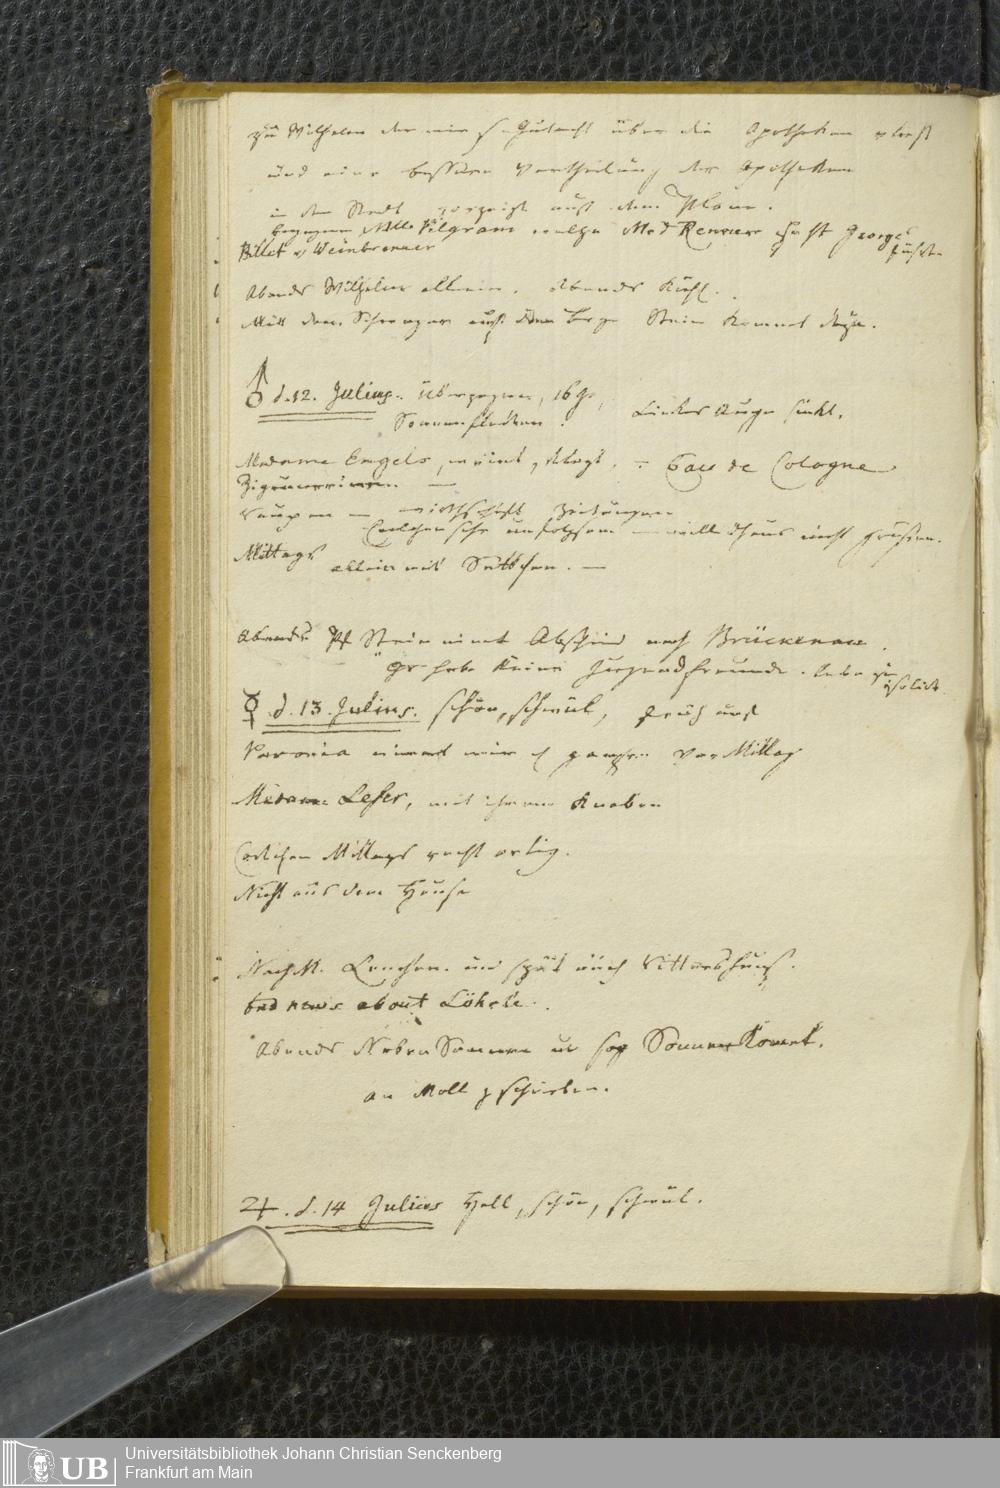 zu Wilhelm der mir s. Gutacht über die Apotheken vorliest
und eine bessere Vertheilung der Apotheken
in der Stadt zeigt auf dem Plane.
begegnen Mlle Pilgram welche Mad Renner George führte
Billet v Weinbrenner
Abends Wilhelm allein. Abends kühl.
Mit dem Schwager auf dem Berge Stein kommt dazu.
♂ d. 12. Julius. überzogen, 16 gr,
Sonnenflecken. Linkes Auge
Madame Engels, weint, klagt, Eau de Cologne
Zigeunerinnen —
— wirthschaft Zeitungen
Carlchen sehr unfolgsam — will nicht grüßen.
Mittags allein mit Settchen. —
Abends Pf Stein nimt Abschied nach Brückenau.
Er habe keine Jugendfreunde. lebe zu isolirt.
☿ d. 13. Julius. schön, schwül, früh auf
Veronica nimmt mir d ganzen Vor Mittag
Madame Leser, mit ihrem Knaben
Carlchen Mittags recht artig.
Nicht aus dem Hause
Nach M. Lenchen. und spät auch Vittershung.
bad news about
Abends Neben Sonnen ut sog Sonnen Komet.
an Moll geschrieben.
♃. d. 14 Julius Hell, schön, schwül.
UB
Universitätsbibliothek Johann Christian Senckenberg
Frankfurt am Main